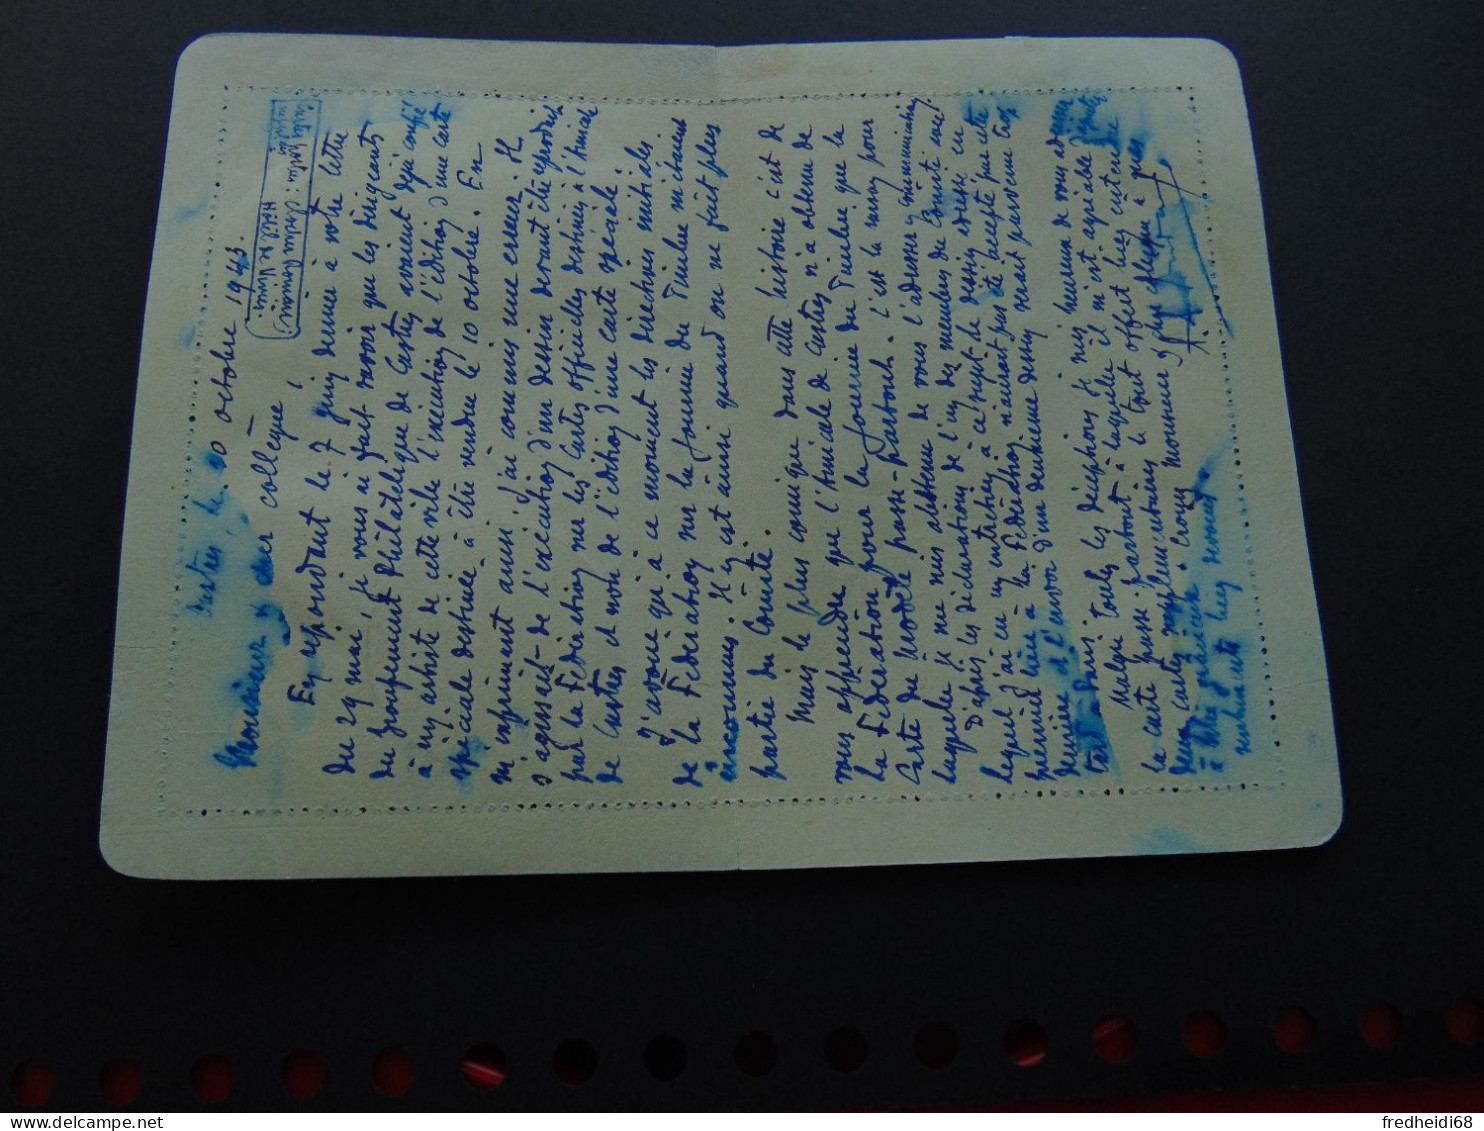 Castres, le 10 octobre 1943
Hôtel de Ville
Monsieur et cher collègue,
En répondant le 7 juin dernier à votre lettre
du 29 mai, je vous ai fait savoir que les dirigeants
du Groupement Philatélique de Castres avaient déjà confié
à un artiste de cette ville l'exécution de l'édition d'une carte
spéciale destinée à être vendue le 10 octobre. En
m'exprimant ainsi, j'ai commis une erreur. Il
s'agissait de l'exécution d'un dessin devant être reproduit
par la Fédération sur les cartes officielles destinées à l'Amicale
de Castres et non de l'édition d'une carte spéciale.
J'avoue qu'à ce moment les directives initiales
de la Fédération sur la Journée du Timbre m'étaient
inconnues. Il en est ainsi quand on ne fait plus
partie du Comité.
Mais le plus comique dans cette histoire c'est de
vous apprendre que l'Amicale de Castres n'a obtenu de
la Fédération pour la Journée du Timbre que la
Carte de modèle passe-partout. C'est la raison pour
laquelle je me suis abstenu de vous l'adresser
D'après les déclarations de l'un des membres du Comité avec
lequel j'ai eu un entretien à ce sujet le dessin adressé en
premier lieu à la Fédération n'aurait pas été accepté par cette
dernière et l'envoi d'un deuxième dessin serait parvenu trop
tard à Paris.
Malgré toutes les déceptions je suis heureux de vous adresser
la carte passe partout à laquelle il m'est agréable d'ajouter
deux cartes supplémentaires le tout offert bien entendu
à titre gracieux. Croyez Monsieur et cher collègue à mes
sentiments bien dévoués
fredheidi68